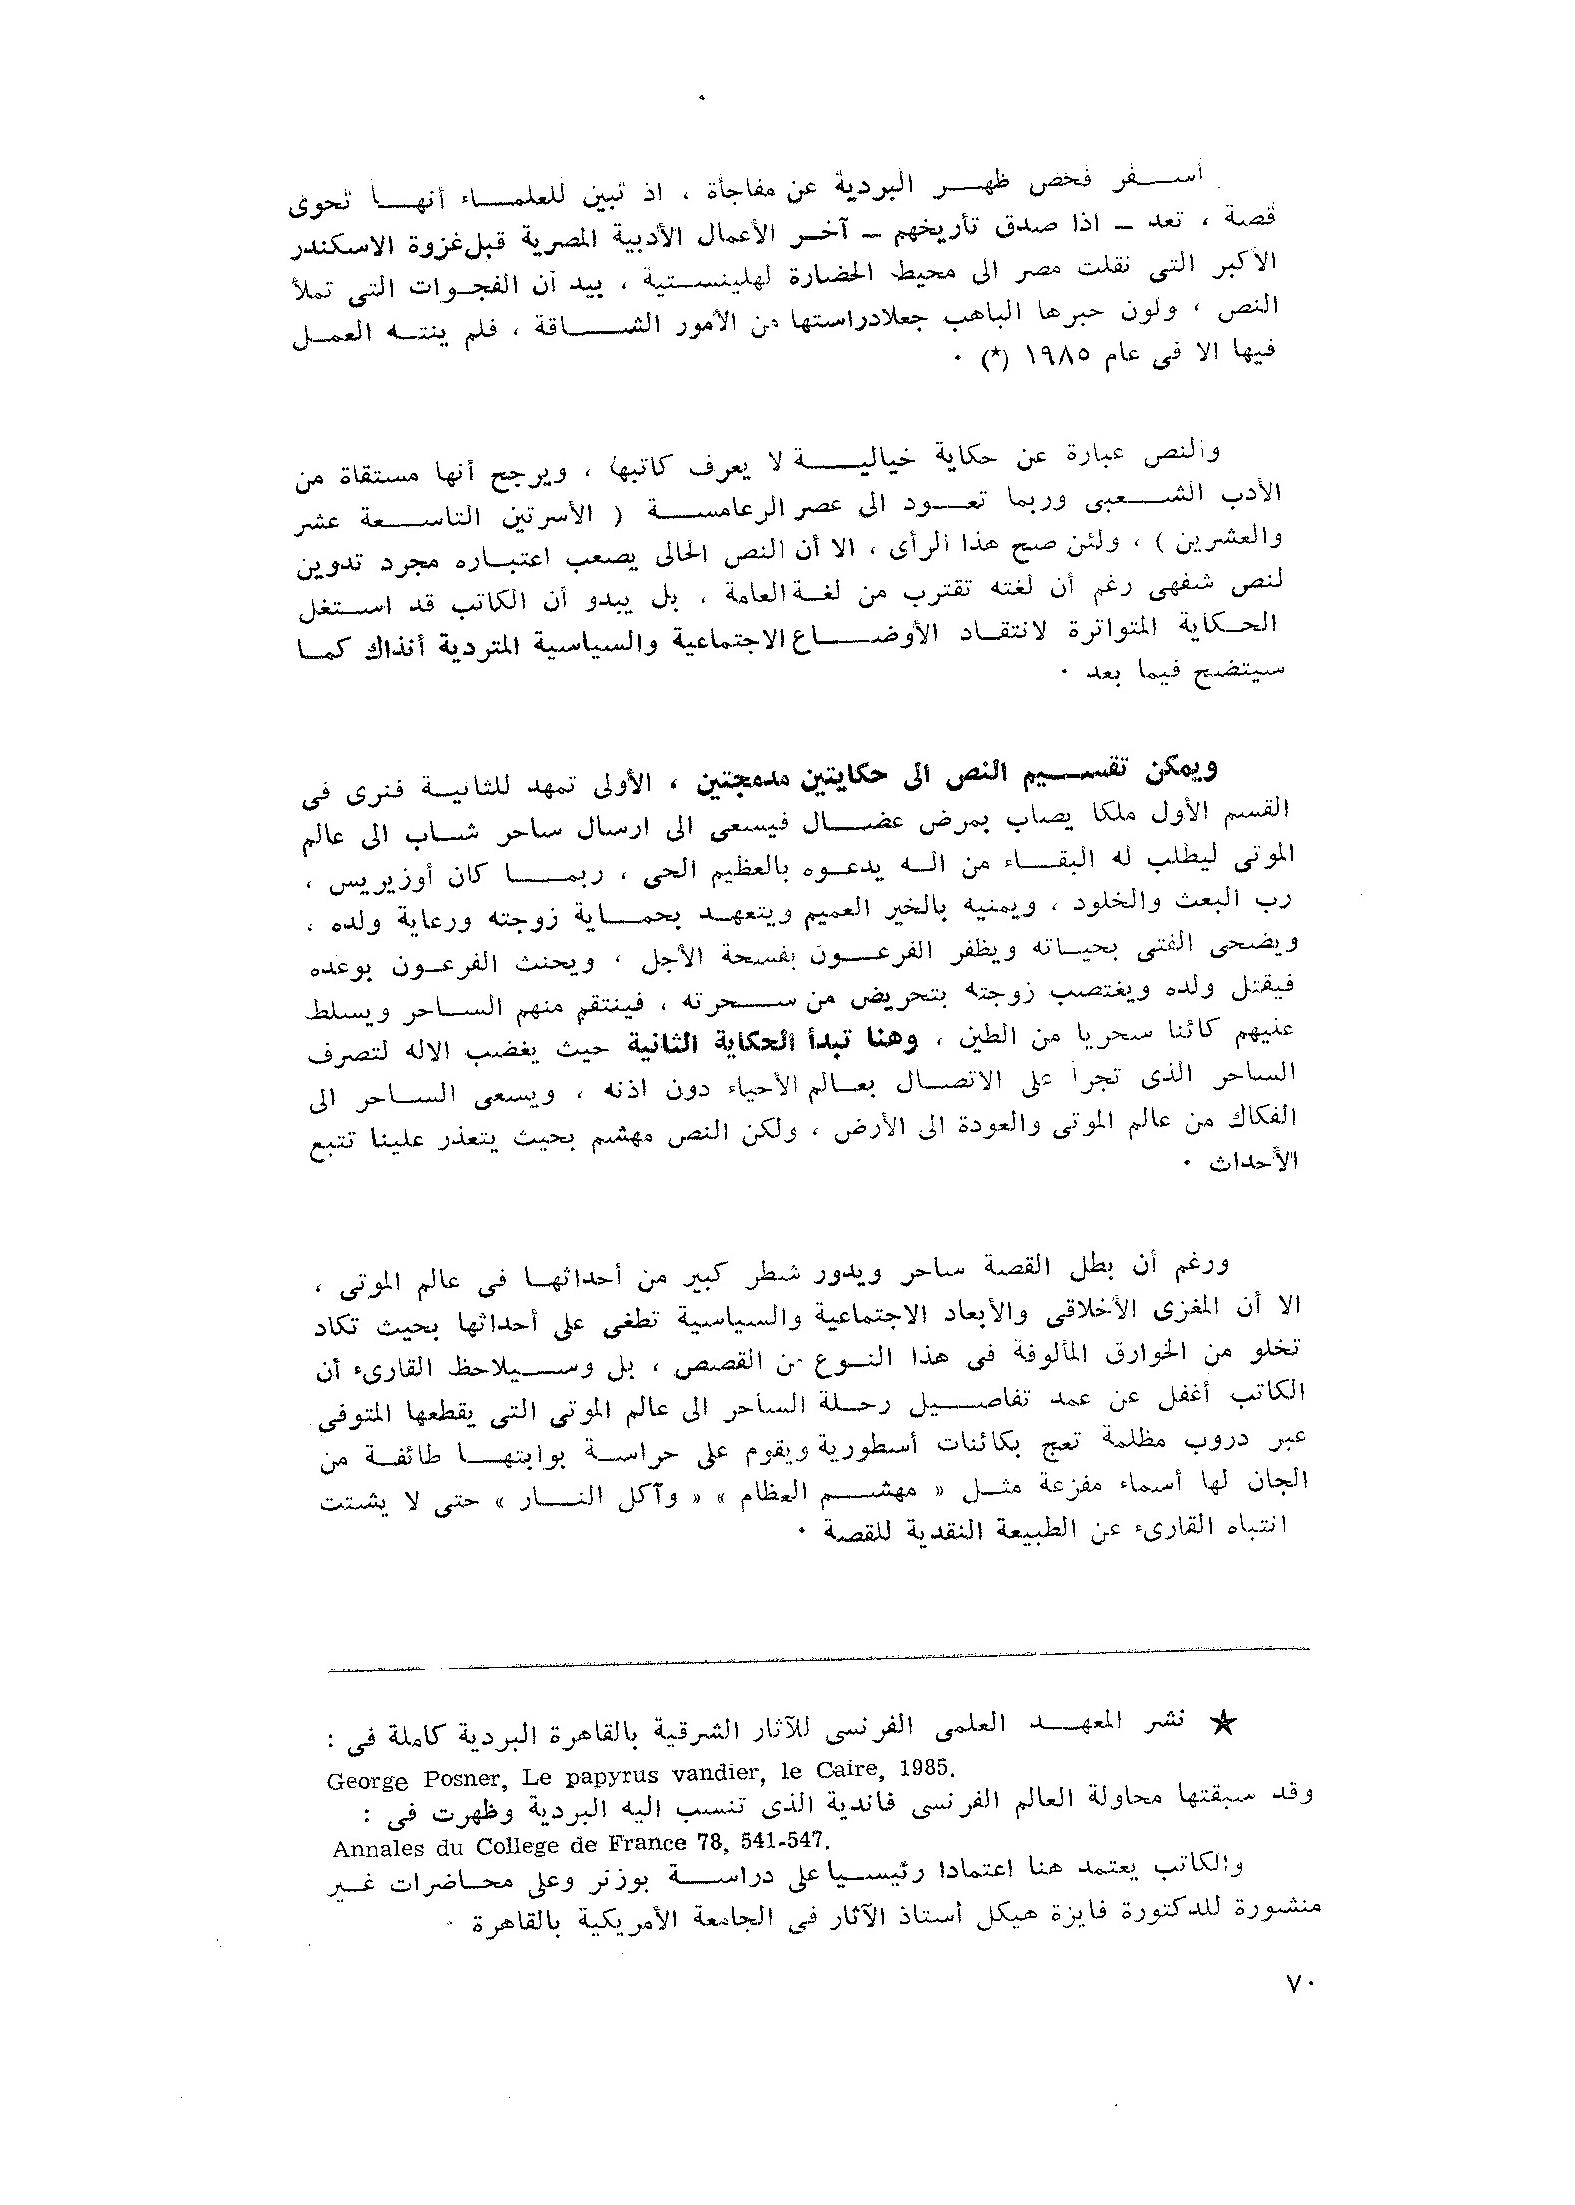 أسفر فحص ظهر البردية عن مفاجأة ، اذ تبين للعلماء أنها تحوى
قصة ، تعد – اذا صدق تأريخهم – آخر الأعمال الأدبية المصرية قبل غزوة الاسكندر
الأكبر التى نقلت مصر الى محيط الحضارة لهلينستية ، بيد أن الفجوات التى تملأ
النص ، ولون حبرها الباهب جعلادراستها من الأمور الشاقة ، فلم ينته العمل
فيها الا فى عام ١٩٨٥ (*) .
والنص عبارة عن حكاية خيالية لا يعرف كاتبها ، ويرجح أنها مستقاة من
الأدب الشعبى وربما تعود الى عصر الرعامسة ( الأسرتين التاسعة عشر
والعشرين ) ، ولئن صح هذا الرأى ، الا أن النص الحالى يصعب اعتباره مجرد تدوين
لنص شفهى رغم أن لغته تقترب من لغة العامة ، بل يبدو أن الكاتب قد استغل
الحكاية المتواترة لانتقاد الأوضاع الاجتماعية والسياسية المتردية أنذاك كما
سيتضح فيما بعد .
ويمكن تقسيم النص الى حكايتين مدمجتين ، الأولى تمهد للثانية فنرى فى
القسم الأول ملكا يصاب بمرض عضال فيسعى الى ارسال ساحر شاب الى عالم
الموتى ليطلب له البقاء من اله يدعوه بالعظيم الحى ، ربما كان أوزيريس ،
رب البعث والخلود ، ويمنيه بالخير العميم ويتعهد بحماية زوجته ورعاية ولده ،
ويضحى الفتى بحياته ويظفر الفرعون بفسحة الأجل ، ويحنث الفرعون بوعده
فيقتل ولده ويغتصب زوجته بتحريض من سحرته ، فينتقم منهم الساحر ويسلط
عليهم كائنا سحريا من الطين ، وهنا تبدأ الحكاية الثانية حيث يغضب الاله لتصرف
الساحر الذى تجرأ على الاتصال بعالم الأحياء دون اذنه ، ويسعى الساحر الى
الفكاك من عالم الموتى والعودة الى الأرض ، ولكن النص مهشم بحيث يتعذر علينا تتبع
الأحداث .
ورغم أن بطل القصة ساحر ويدور شطر كبير من أحداثها فى عالم الموتى ،
الا أن المغزى الأخلاقى والأبعاد الاجتماعية والسياسية تطغى على أحداثها بحيث تكاد
تخلو من الخوارق المألوفة فى هذا النوع من القصص ، بل وسيلاحظ القارىء أن
الكاتب أغفل عن عمد تفاصيل رحلة الساحر الى عالم الموتى التى يقطعها المتوفى
عبر دروب مظلمة تعج بكائنات أسطورية ويقوم على حراسة بوابتها طائفة من
الجان لها أسماء مفزعة مثل « مهشم العظام » « وآكل النار » حتى لا يشتت
انتباه القارىء عن الطبيعة النقدية للقصة .
★ نشر المعهد العلمى الفرنسى للآثار الشرقية بالقاهرة البردية كاملة فى :
George Posner, Le papyrus vandier, le Caire, 1985.
وقد سبقتها محاولة العالم الفرنسى فاندية الذى تنسب اليه البردية وظهرت فى :
Annales du College de France 78, 541-547.
والكاتب يعتمد هنا اعتمادا رئيسيا على دراسة بوزنر وعلى محاضرات غير
منشورة للدكتورة فايزة هيكل أستاذ الآثار فى الجامعة الأمريكية بالقاهرة .
٧٠